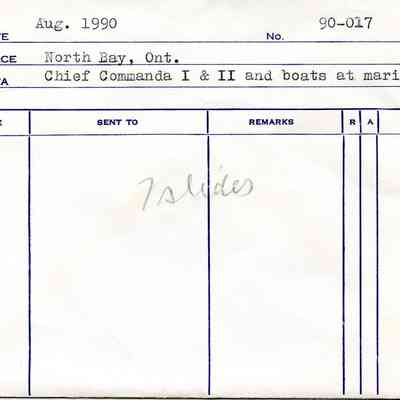 TE Aug. 1990 No. 90-017
CE North Bay, Ont.
TA Chief Commanda I & II and boats at mari
E SENT TO REMARKS R A
7 slides